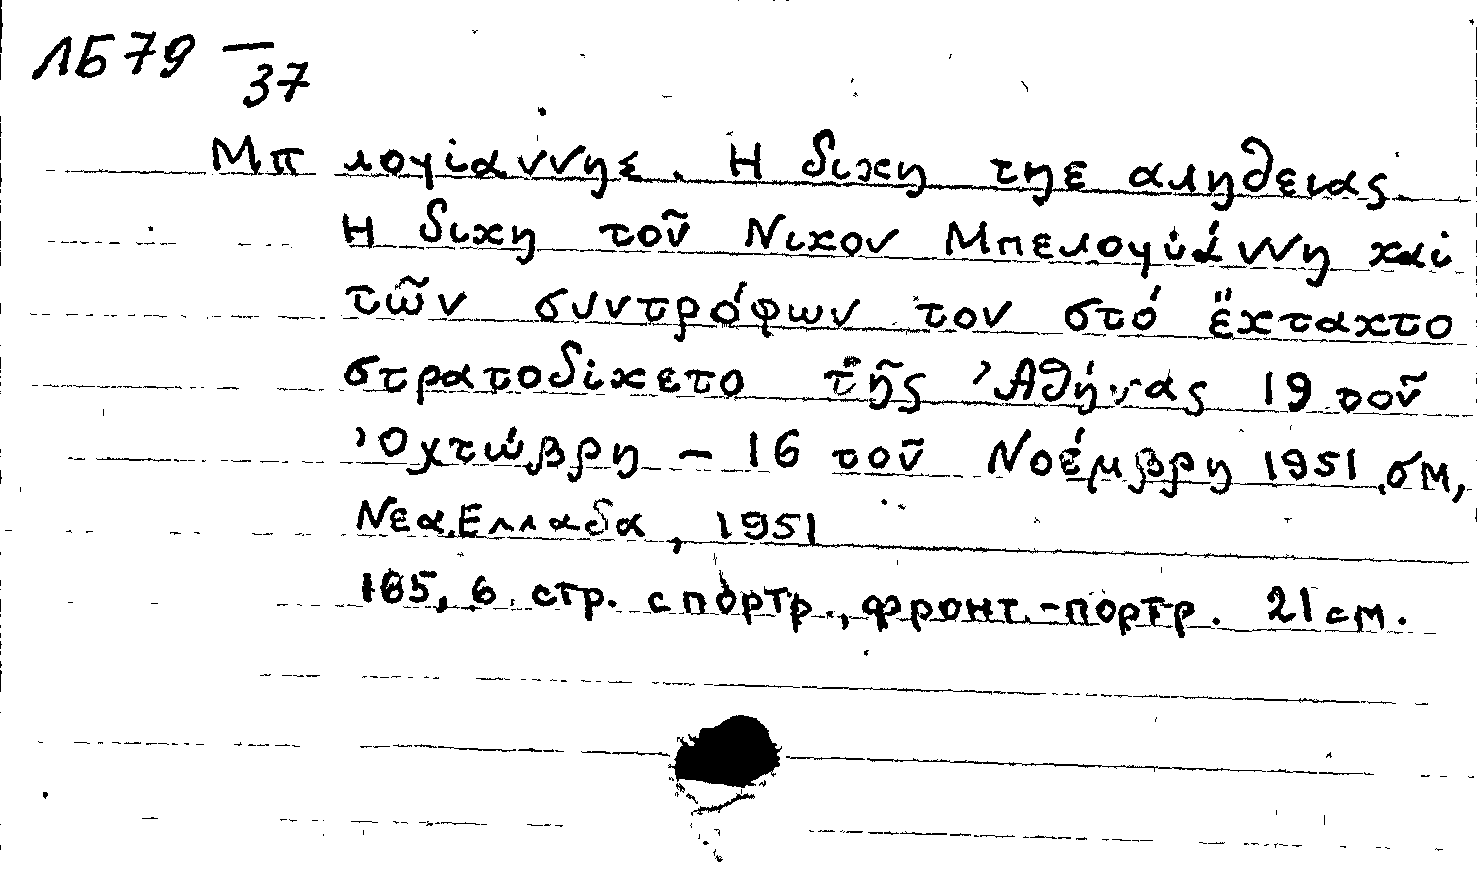 ЛБ 79 —
37
Μπ λογίαννης. Η δικη της αληθειας.
Η δικη τοῦ Νικου Μπελογιάννη καί
τῶν συντρόφων του στό ἔκτακτο
στρατοδίκετο τῆς Ἀθήνας 19 τοῦ
Ὀχτώβρη – 16 τοῦ Νοέμβρη 1951 σм,
Νεα Ελλαδα, 1951
165, 6 стр. с портр., фронт.-портр. 21 см.